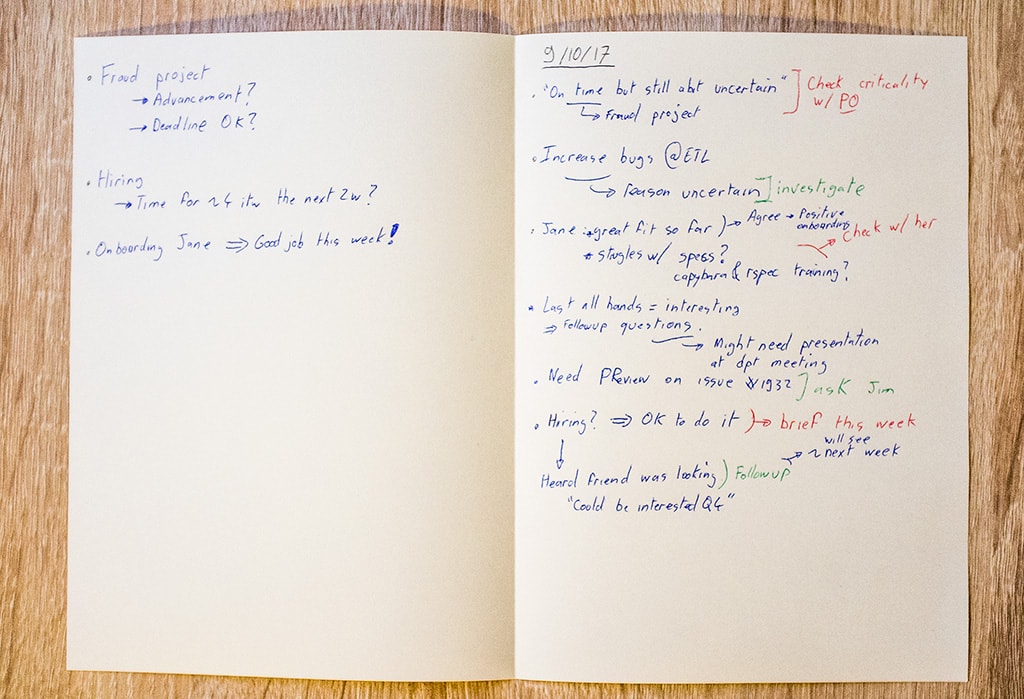 • Fraud project
→ Advancement?
→ Deadline OK?
• Hiring
→ Time for ~4 itw the next 2w?
• Onboarding Jane ⇒ Good job this week!
9/10/17
• "On time but still abt uncertain" ] Check criticality
w/ PO
↳ Fraud project
• Increase bugs @ETL
↳ reason uncertain ] investigate
• Jane : great fit so far ) → Agree → Positive
onboarding
Check w/ her
* stugles w/ specs?
capybara & rspec training?
• Last all hands = interesting
⇒ Followup questions.
→ Might need presentation
at dpt meeting
• Need PReview on issue #1932 ] ask Jim
• Hiring? ⇒ OK to do it ) → brief this week
will see
~next week
↓
Heard friend was looking ) Followup
"Could be interested Q4"